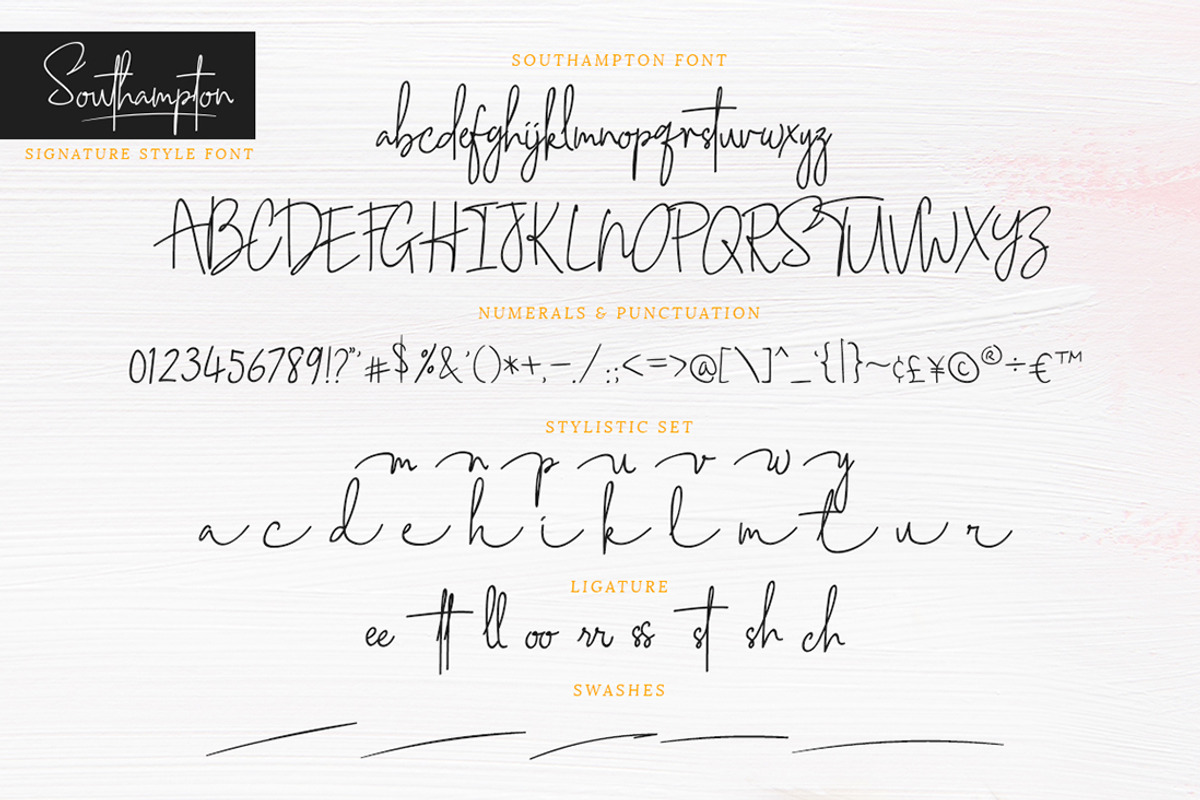 Southampton
SIGNATURE STYLE FONT
SOUTHAMPTON FONT
abcdefghijklmnopqrstuvwxyz
ABCDEFGHIJKLNOPQRSTUVWXYZ
NUMERALS & PUNCTUATION
0123456789!?"'#$%&'()*+,-./:;<=>@[\]^_`{|}~¢£¥©®÷€™
STYLISTIC SET
m n p u v w y
a c d e h i k l m t u r
LIGATURE
ee tt ll oo rr ss st sh ch
SWASHES